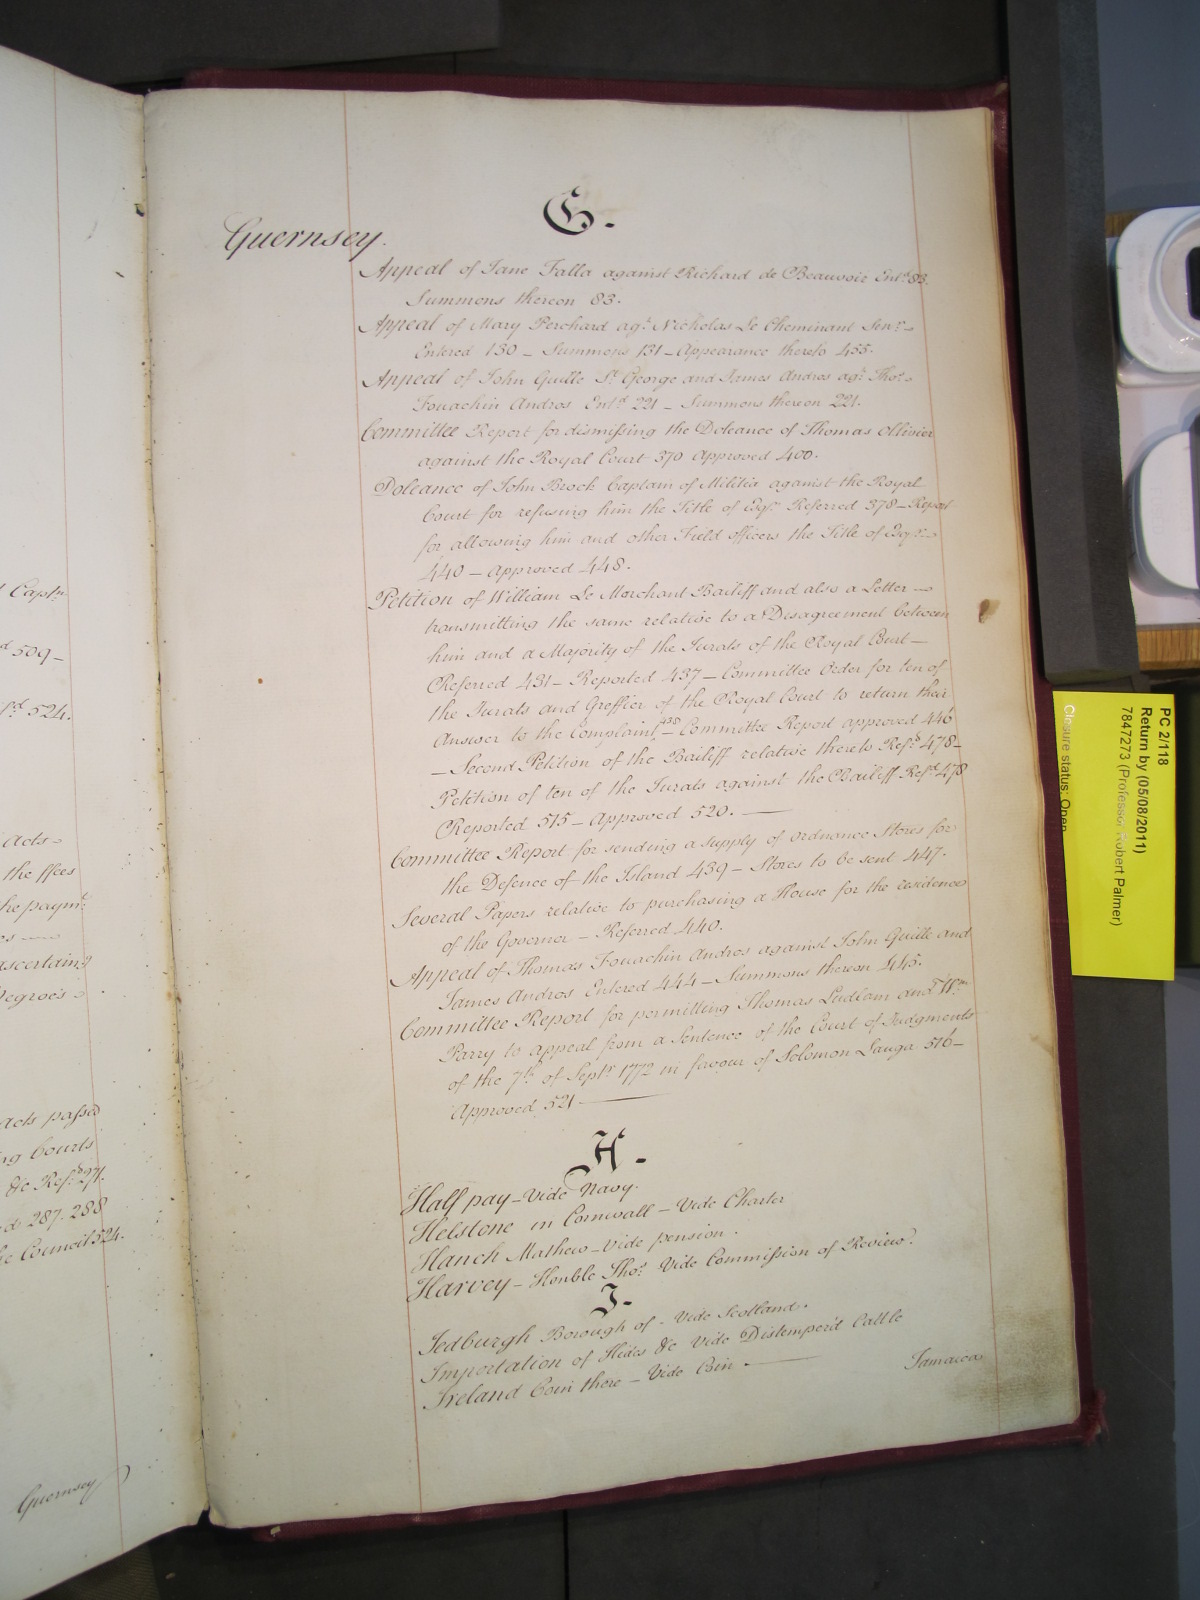 Capt.n
d 509 –
d 524.
Acts –
the ffees
he paym.t
ascertain.g
Negroes
Acts passed
ng Courts
&c Ref.d 271.
d 287. 288
e Council 524.
Guernsey
G.
Guernsey.
Appeal of Jane Falla against Richard de Beauvoir Ent.d 83.
Summons thereon 83.
Appeal of Mary Perchard ag.t Nicholas Le Cheminant Sen.r
Entered 130 – Summons 131 – Appearance thereto 455.
Appeal of John Guille S.t George and James Andros ag.t Tho.s
Fouachin Andros Ent.d 221 – Summons thereon 221.
Committee Report for dismissing the Doleance of Thomas Ollivier
against the Royal Court 370 Approved 400.
Doleance of John Brock Captain of Militia against the Royal
Court for refusing him the Title of Esq.r Referred 378 – Report
for allowing him and other Field officers the Title of Esq.r
440 – Approved 448.
Petition of William Le Marchant Bailiff and also a Letter
transmitting the same relative to a Disagreement between
him and a Majority of the Jurats of the Royal Court –
Referred 431 – Reported 437 – Committee Order for ten of
the Jurats and Greffier of the Royal Court to return their
Answer to the Complaint 438 – Committee Report approved 446
– Second Petition of the Bailiff relative thereto Ref.d 478 –
Petition of ten of the Jurats against the Bailiff Ref.d 478
Reported 515 – Approved 520. –
Committee Report for sending a supply of ordnance Stores for
the Defence of the Island 439 – Stores to be sent 447.
Several Papers relative to purchasing a House for the residence
of the Governor – Referred 440.
Appeal of Thomas Fouachin Andros against John Guille and
James Andros Entered 444 – Summons thereon 445.
Committee Report for permitting Thomas Ludlam and W.m
Parry to appeal from a Sentence of the Court of Judgments
of the 7.th of Sept.r 1772 in favour of Solomon Lauga 516 –
Approved 521 –
H.
Half pay – Vide Navy.
Helstone in Cornwall – Vide Charter
Hanch Mathew – Vide pension.
Harvey – Honble Tho.s Vide Commission of Review.
J.
Jedburgh Borough of – Vide Scotland.
Importation of Hides &c Vide Distemper'd Cattle
Ireland Coin there – Vide Coin. –
Jamaica
PC 2/118
Return by (05/08/2011)
7847273 (Professor Robert Palmer)
Closure status: Open